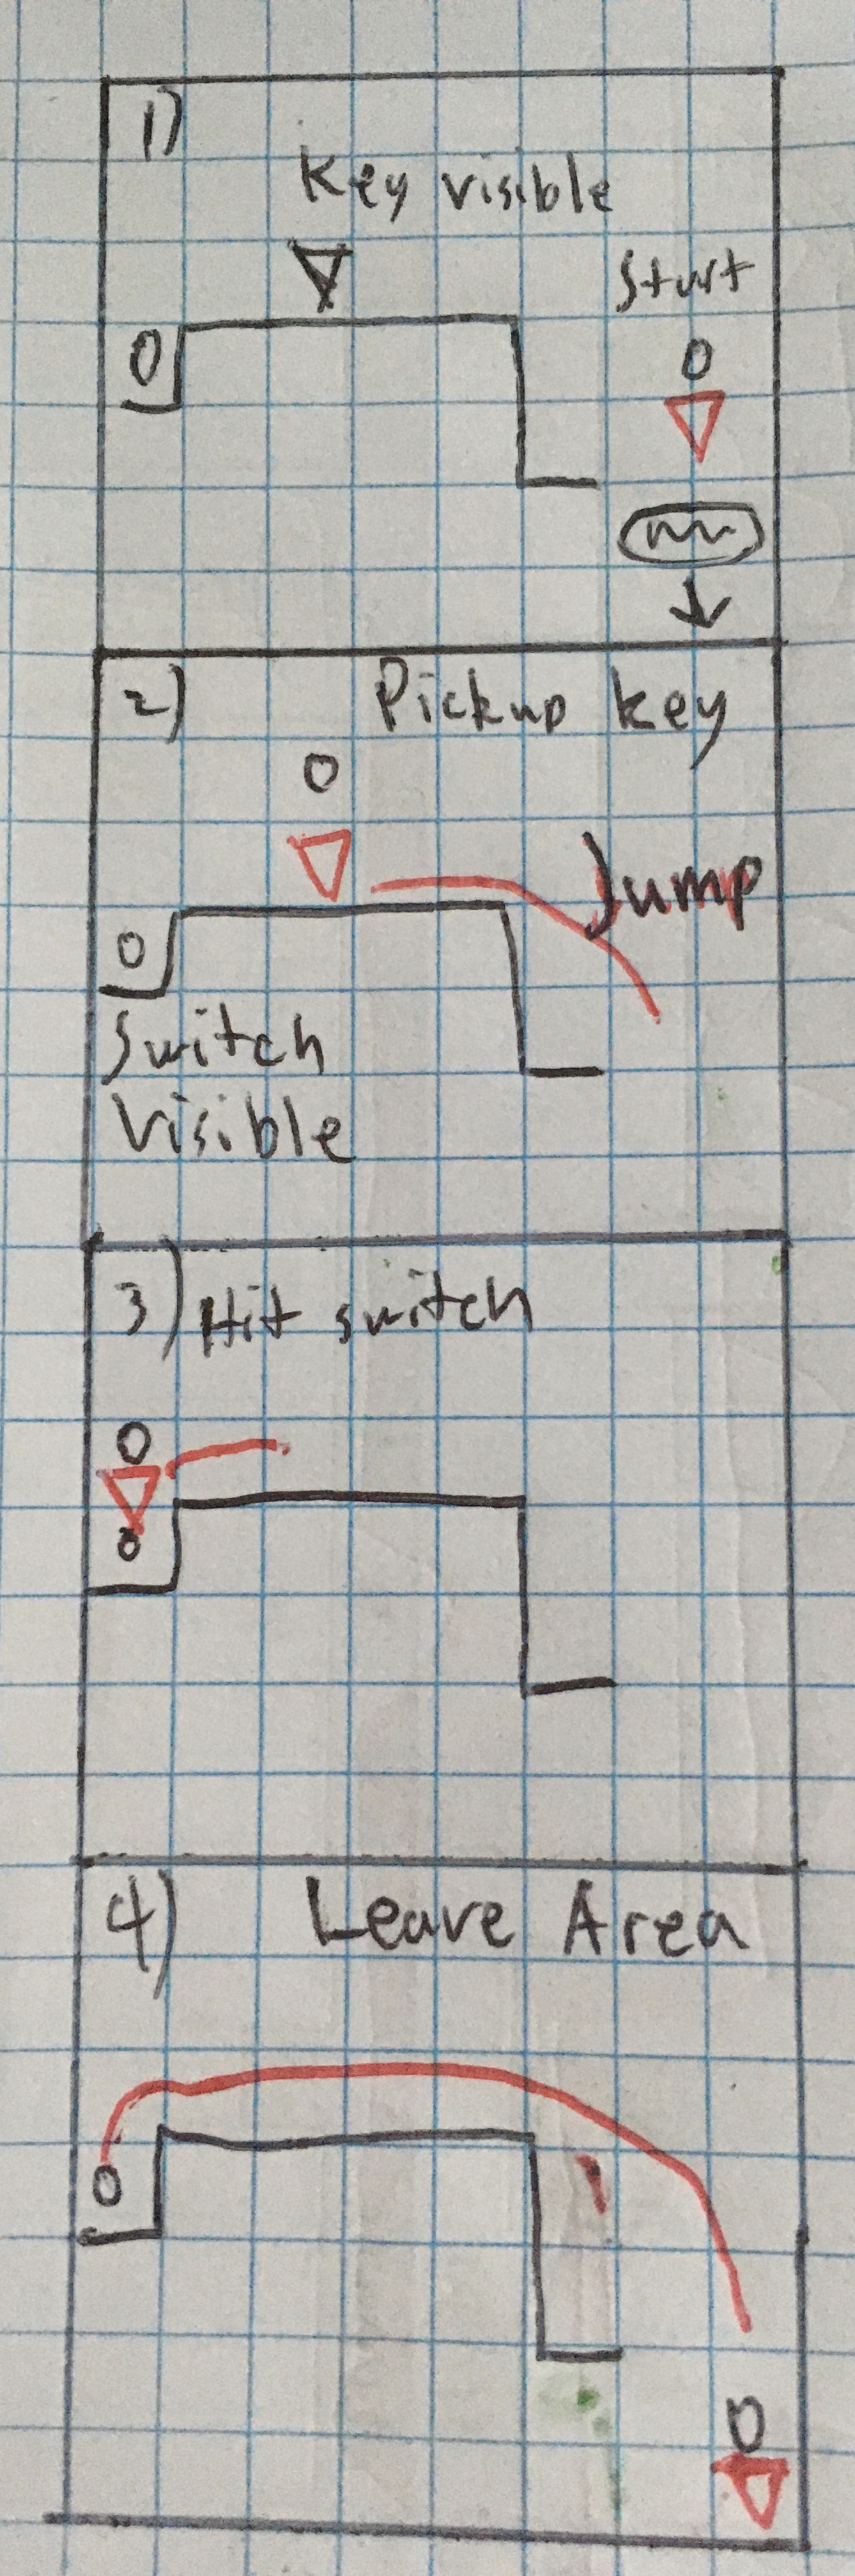 1)
Key visible
Start
2)
Pickup key
Jump
Switch
Visible
3) Hit switch
4) Leave Area